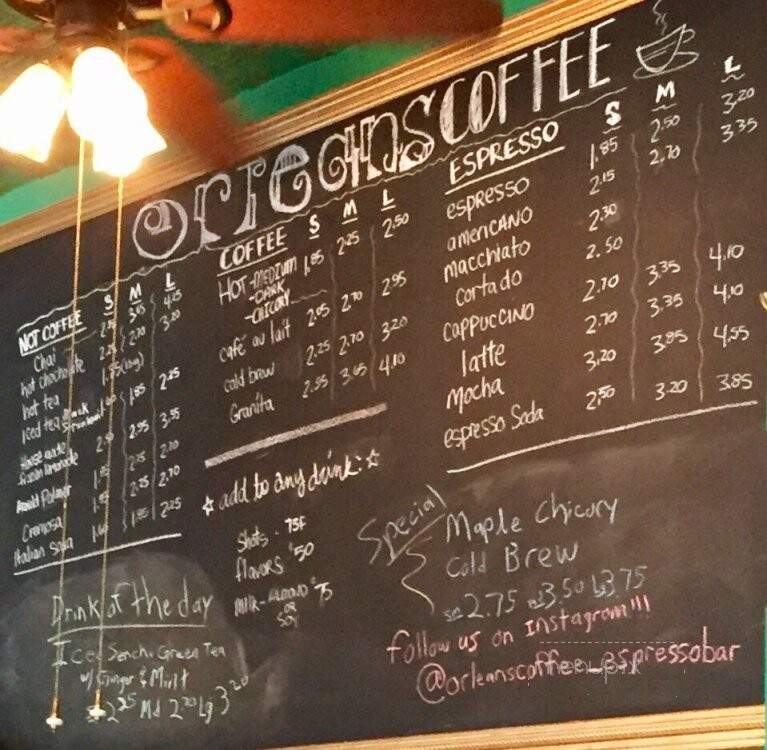 Orleans COFFEE
NOT COFFEE S M L
Chai 3.95 4.25
hot chocholate 2.70 3.20
hot tea
iced tea 1.85 2.25
House made
2.95 3.55
Arnold Palmer 2.25
Cremosa 2.25 2.70
Italian soda 1.85 2.25
COFFEE S M L
HOT - MEDIUM 1.85 2.25 2.50
- DARK
- CHICORY
café au lait 2.05 2.70 2.95
cold brew 2.25 2.70 3.20
Granita 2.95 3.65 4.10
ESPRESSO S M L
espresso 1.85 2.50 3.20
americano 2.15 2.70 3.35
macchiato 2.30
cortado 2.50
cappuccino 2.70 3.35 4.10
latte 2.70 3.35 4.10
Mocha 3.20 3.85 4.55
espresso Soda 2.50 3.20 3.85
☆ add to any drink: ☆
Shots - 75¢
flavors $50
Milk - Almond $75
OR
SOY
Special
Maple Chicory
Cold Brew
sm 2.75 md 3.50 L 3.75
follow us on Instagram!!!
@orleanscoffee_espressobar
Drink of the day
Iced Sencha Green Tea
w/ Ginger & Mint
2.25 Md 2.70 Lg 3.20